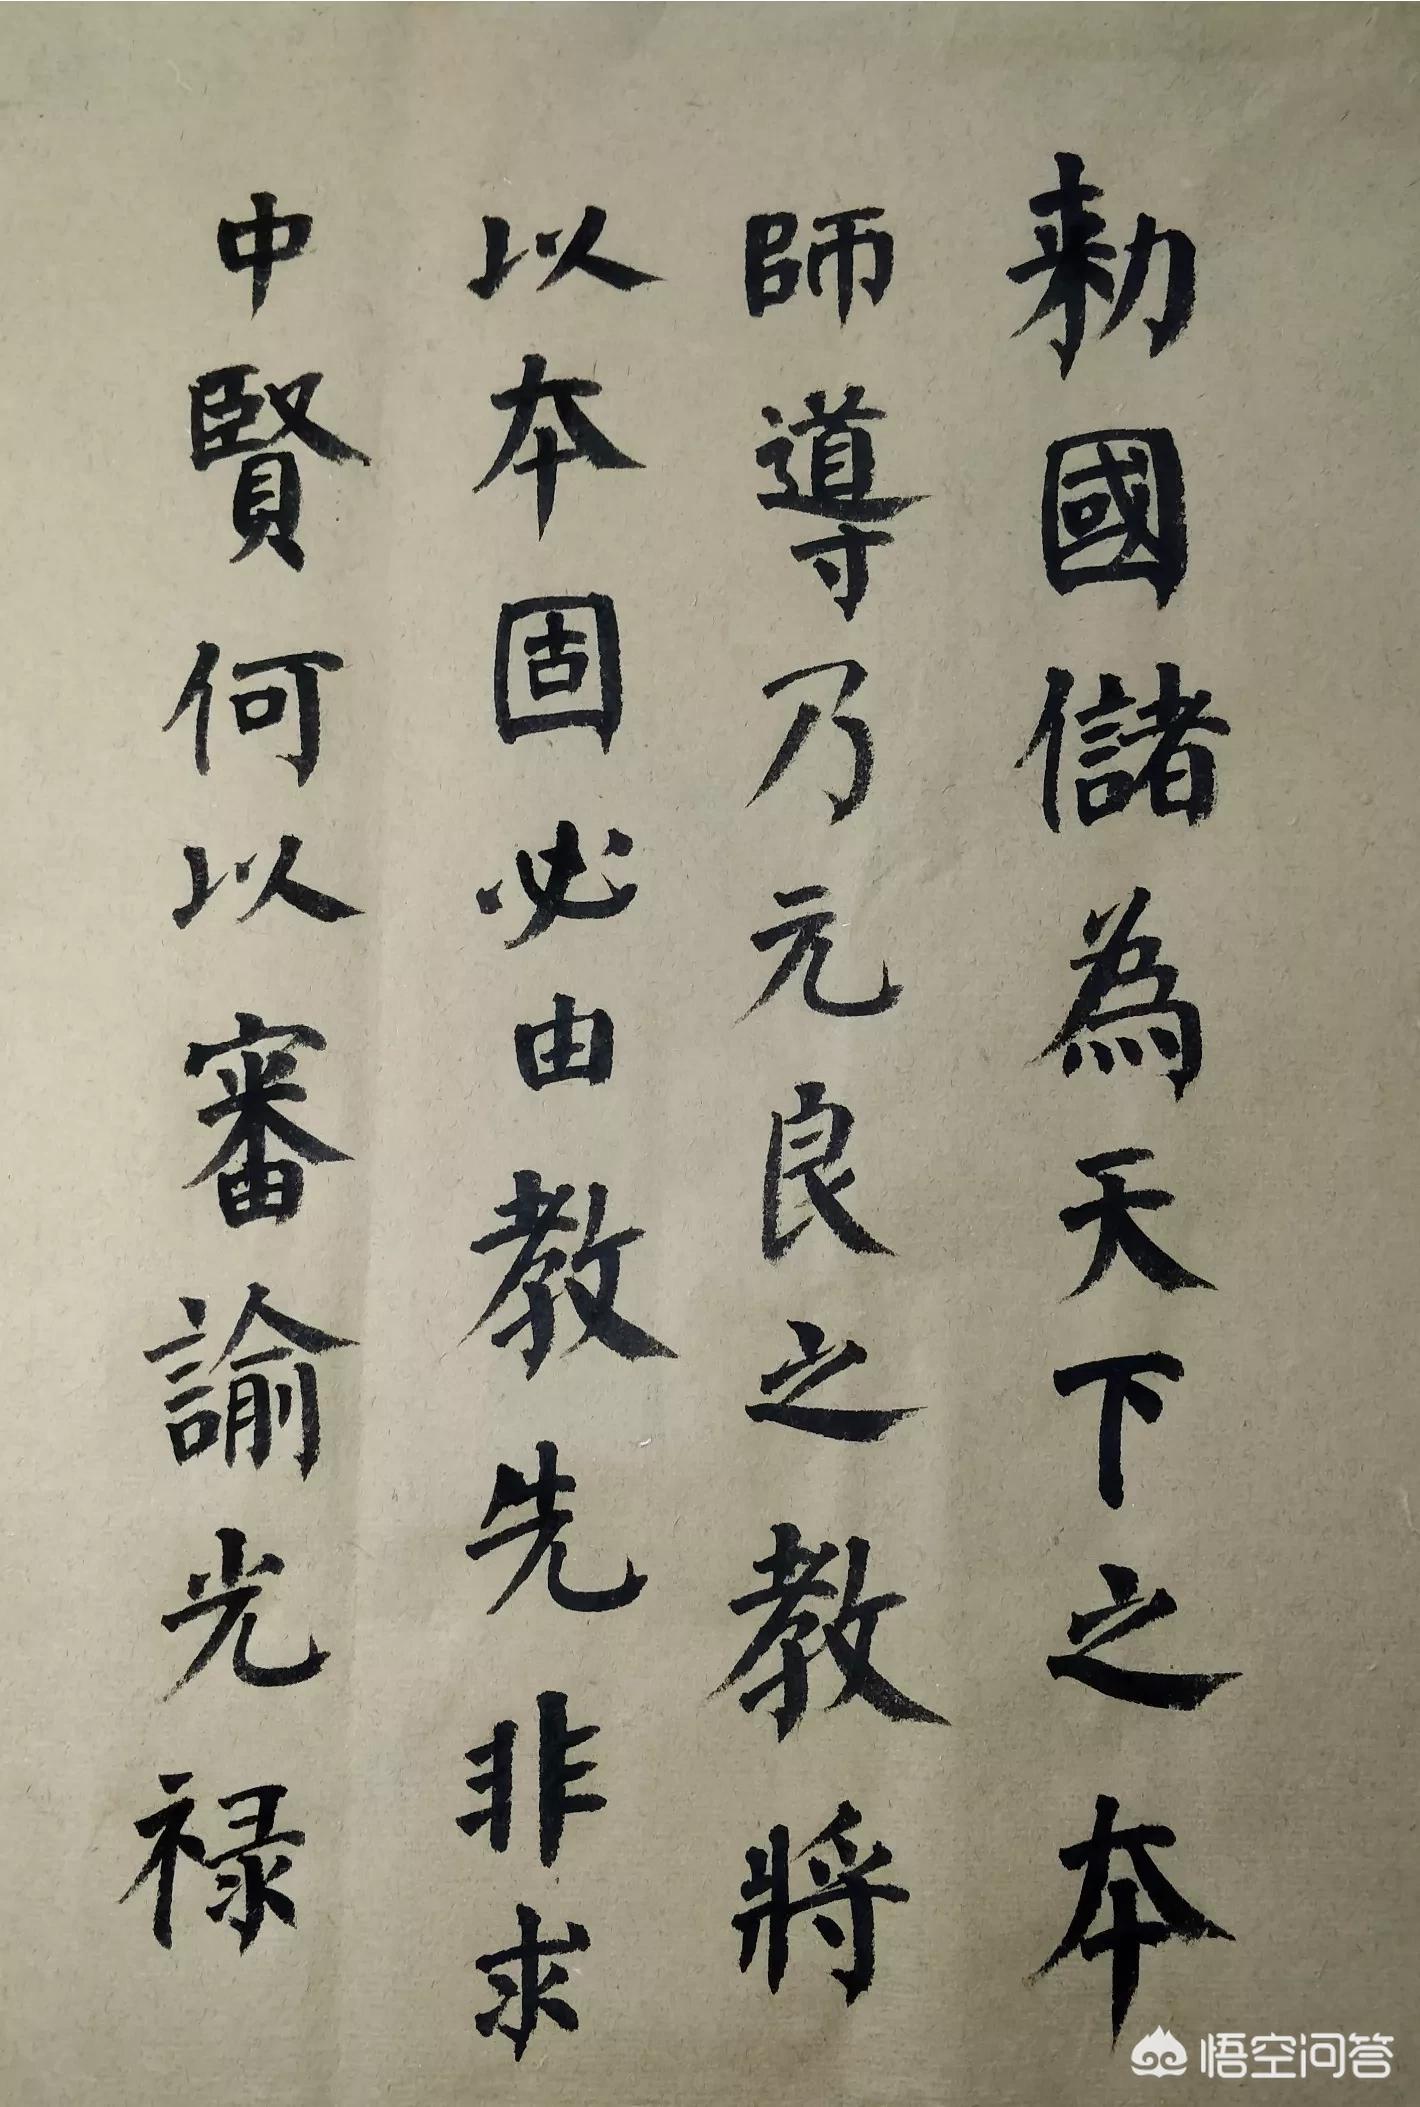 勑國儲為天下之本
師導乃元良之教將
以本固必由教先非求
中賢何以審諭光禄
悟空问答